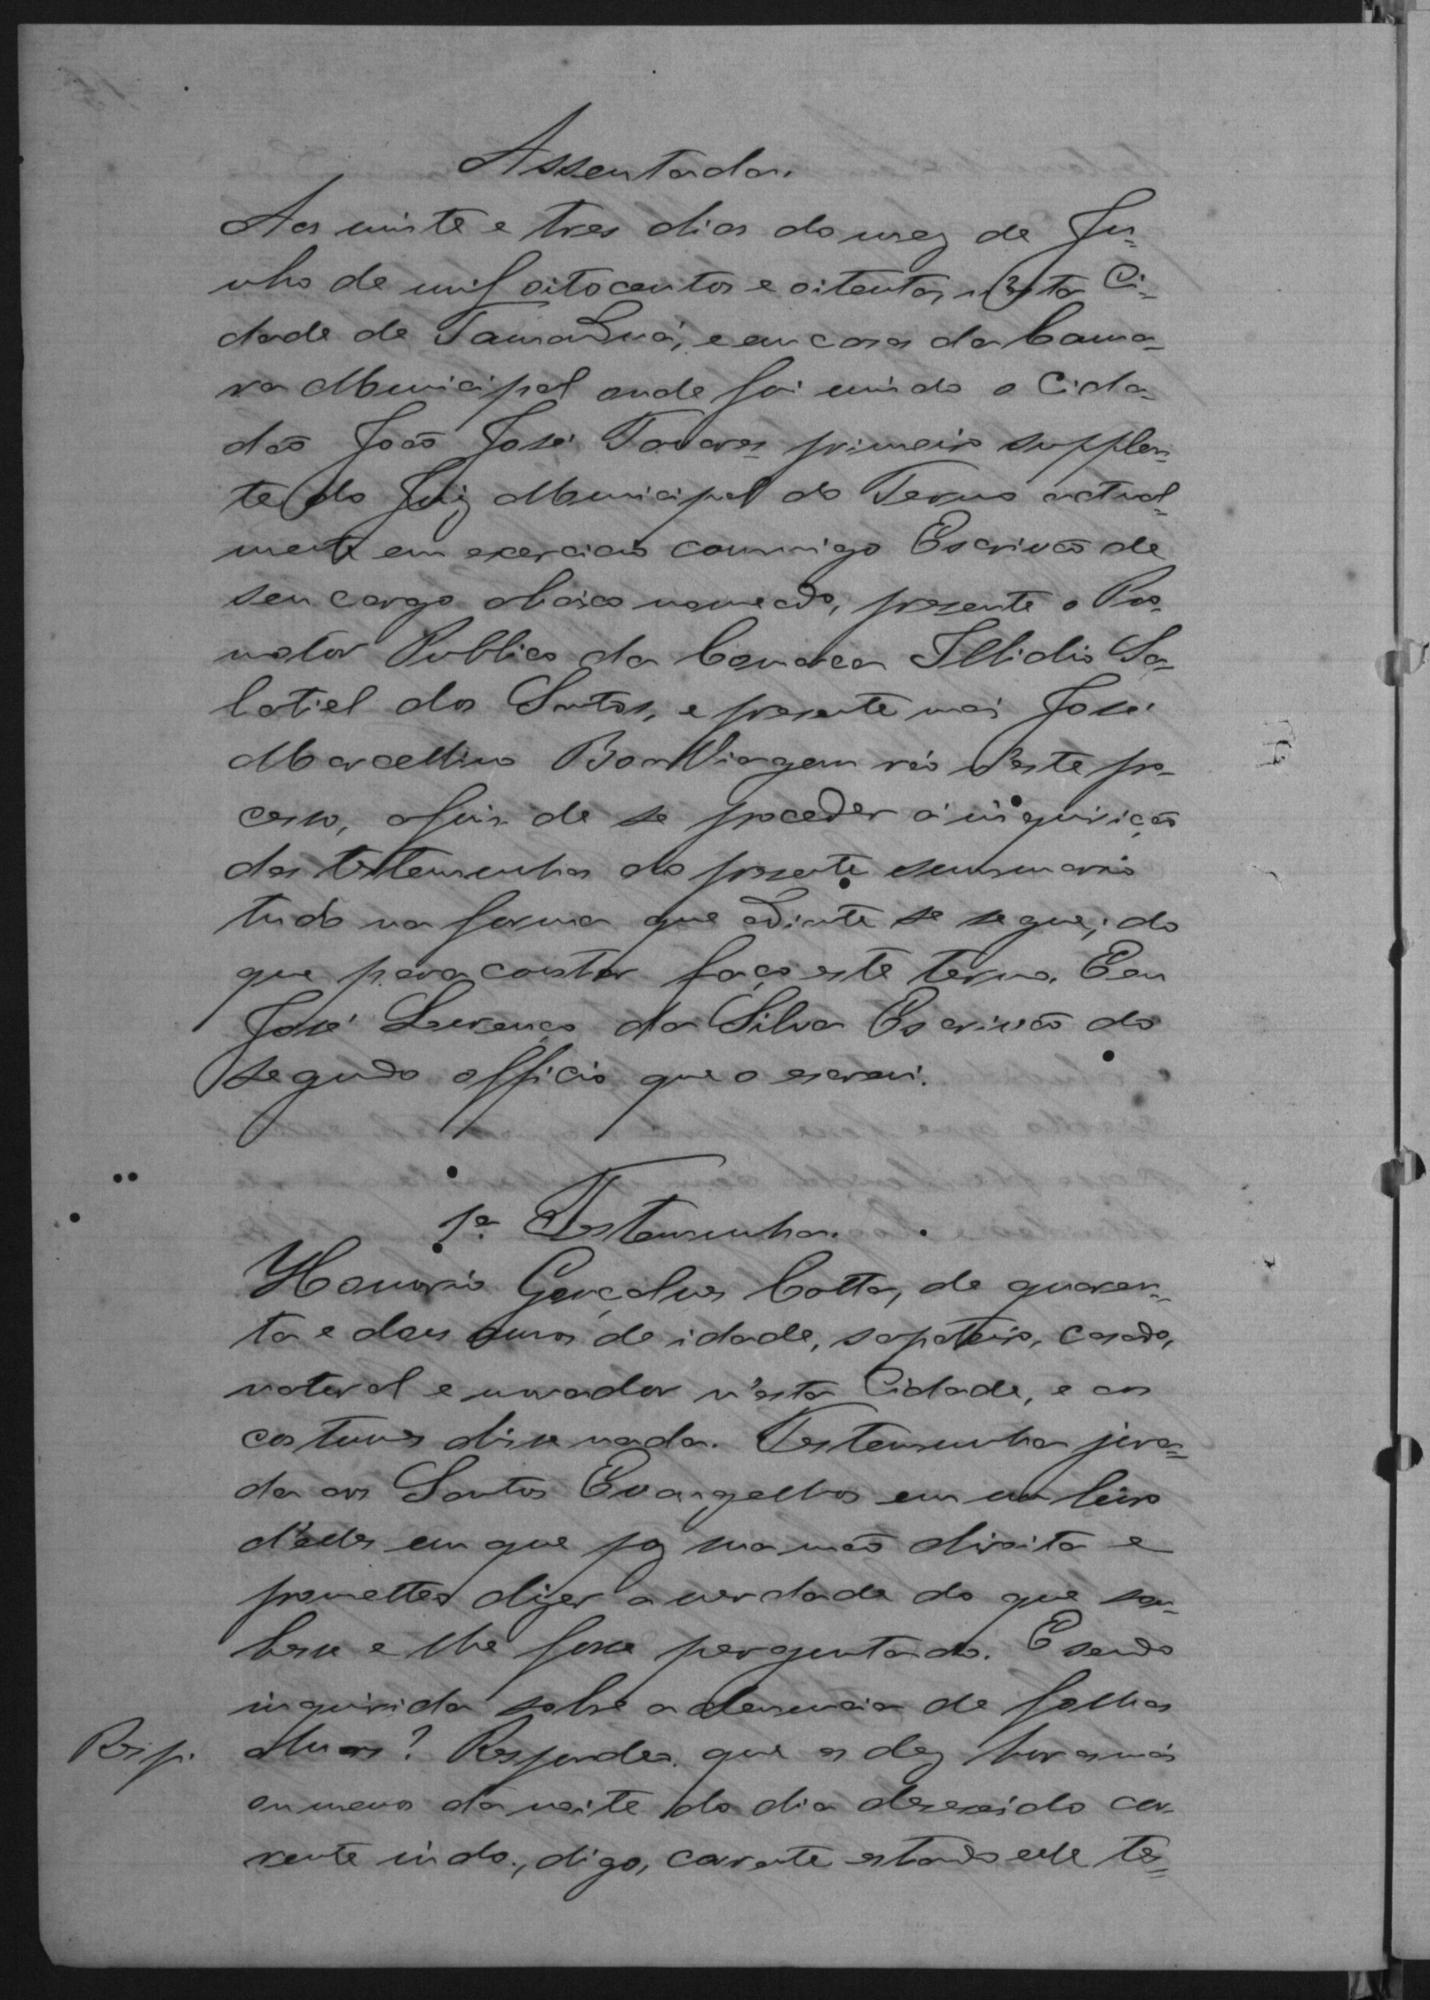 Assentada.
Aos vinte e tres dias do mez de Ju-
nho de mil oitocentos e oitenta, nesta Ci-
dade de Tamanduá, e em casa da Cama-
ra Municipal onde foi vindo o Cida-
dão João José Tavares primeiro supplen-
te do Juiz Municipal do Termo actual-
mente em exercicio commigo Escrivão de
seu cargo abaixo nomeado, presente o Pro-
motor Publico da Comarca Illidio Sa-
latiel dos Santos, e presente mais José
Marcellino Boa Viagem réo deste pro-
cesso, afim de se proceder á inquirição
das testemunhas do presente summario
tudo na forma que adiante se segue; do
que para constar faço este termo. Eu
José Lourenço da Silva Escrivão do
segundo officio que o escrevi.
1ª Testemunha.
Honorio Gonçalves Cotta, de quaren-
ta e dois annos de idade, sapateiro, casado,
natural e morador n'esta Cidade, e aos
costumes disse nada. Testemunha jura-
da aos Santos Evangelhos em um livro
d'elles em que poz sua mão direita e
prometteo dizer a verdade do que sou-
besse e lhe fosse perguntado. E sendo
inquirida sobre a denuncia de folhas
duas? Respondeo que as dez horas mais
Resp.
ou menos da noite do dia deseseis do cor-
rente indo, digo, corrente estando elle tes-